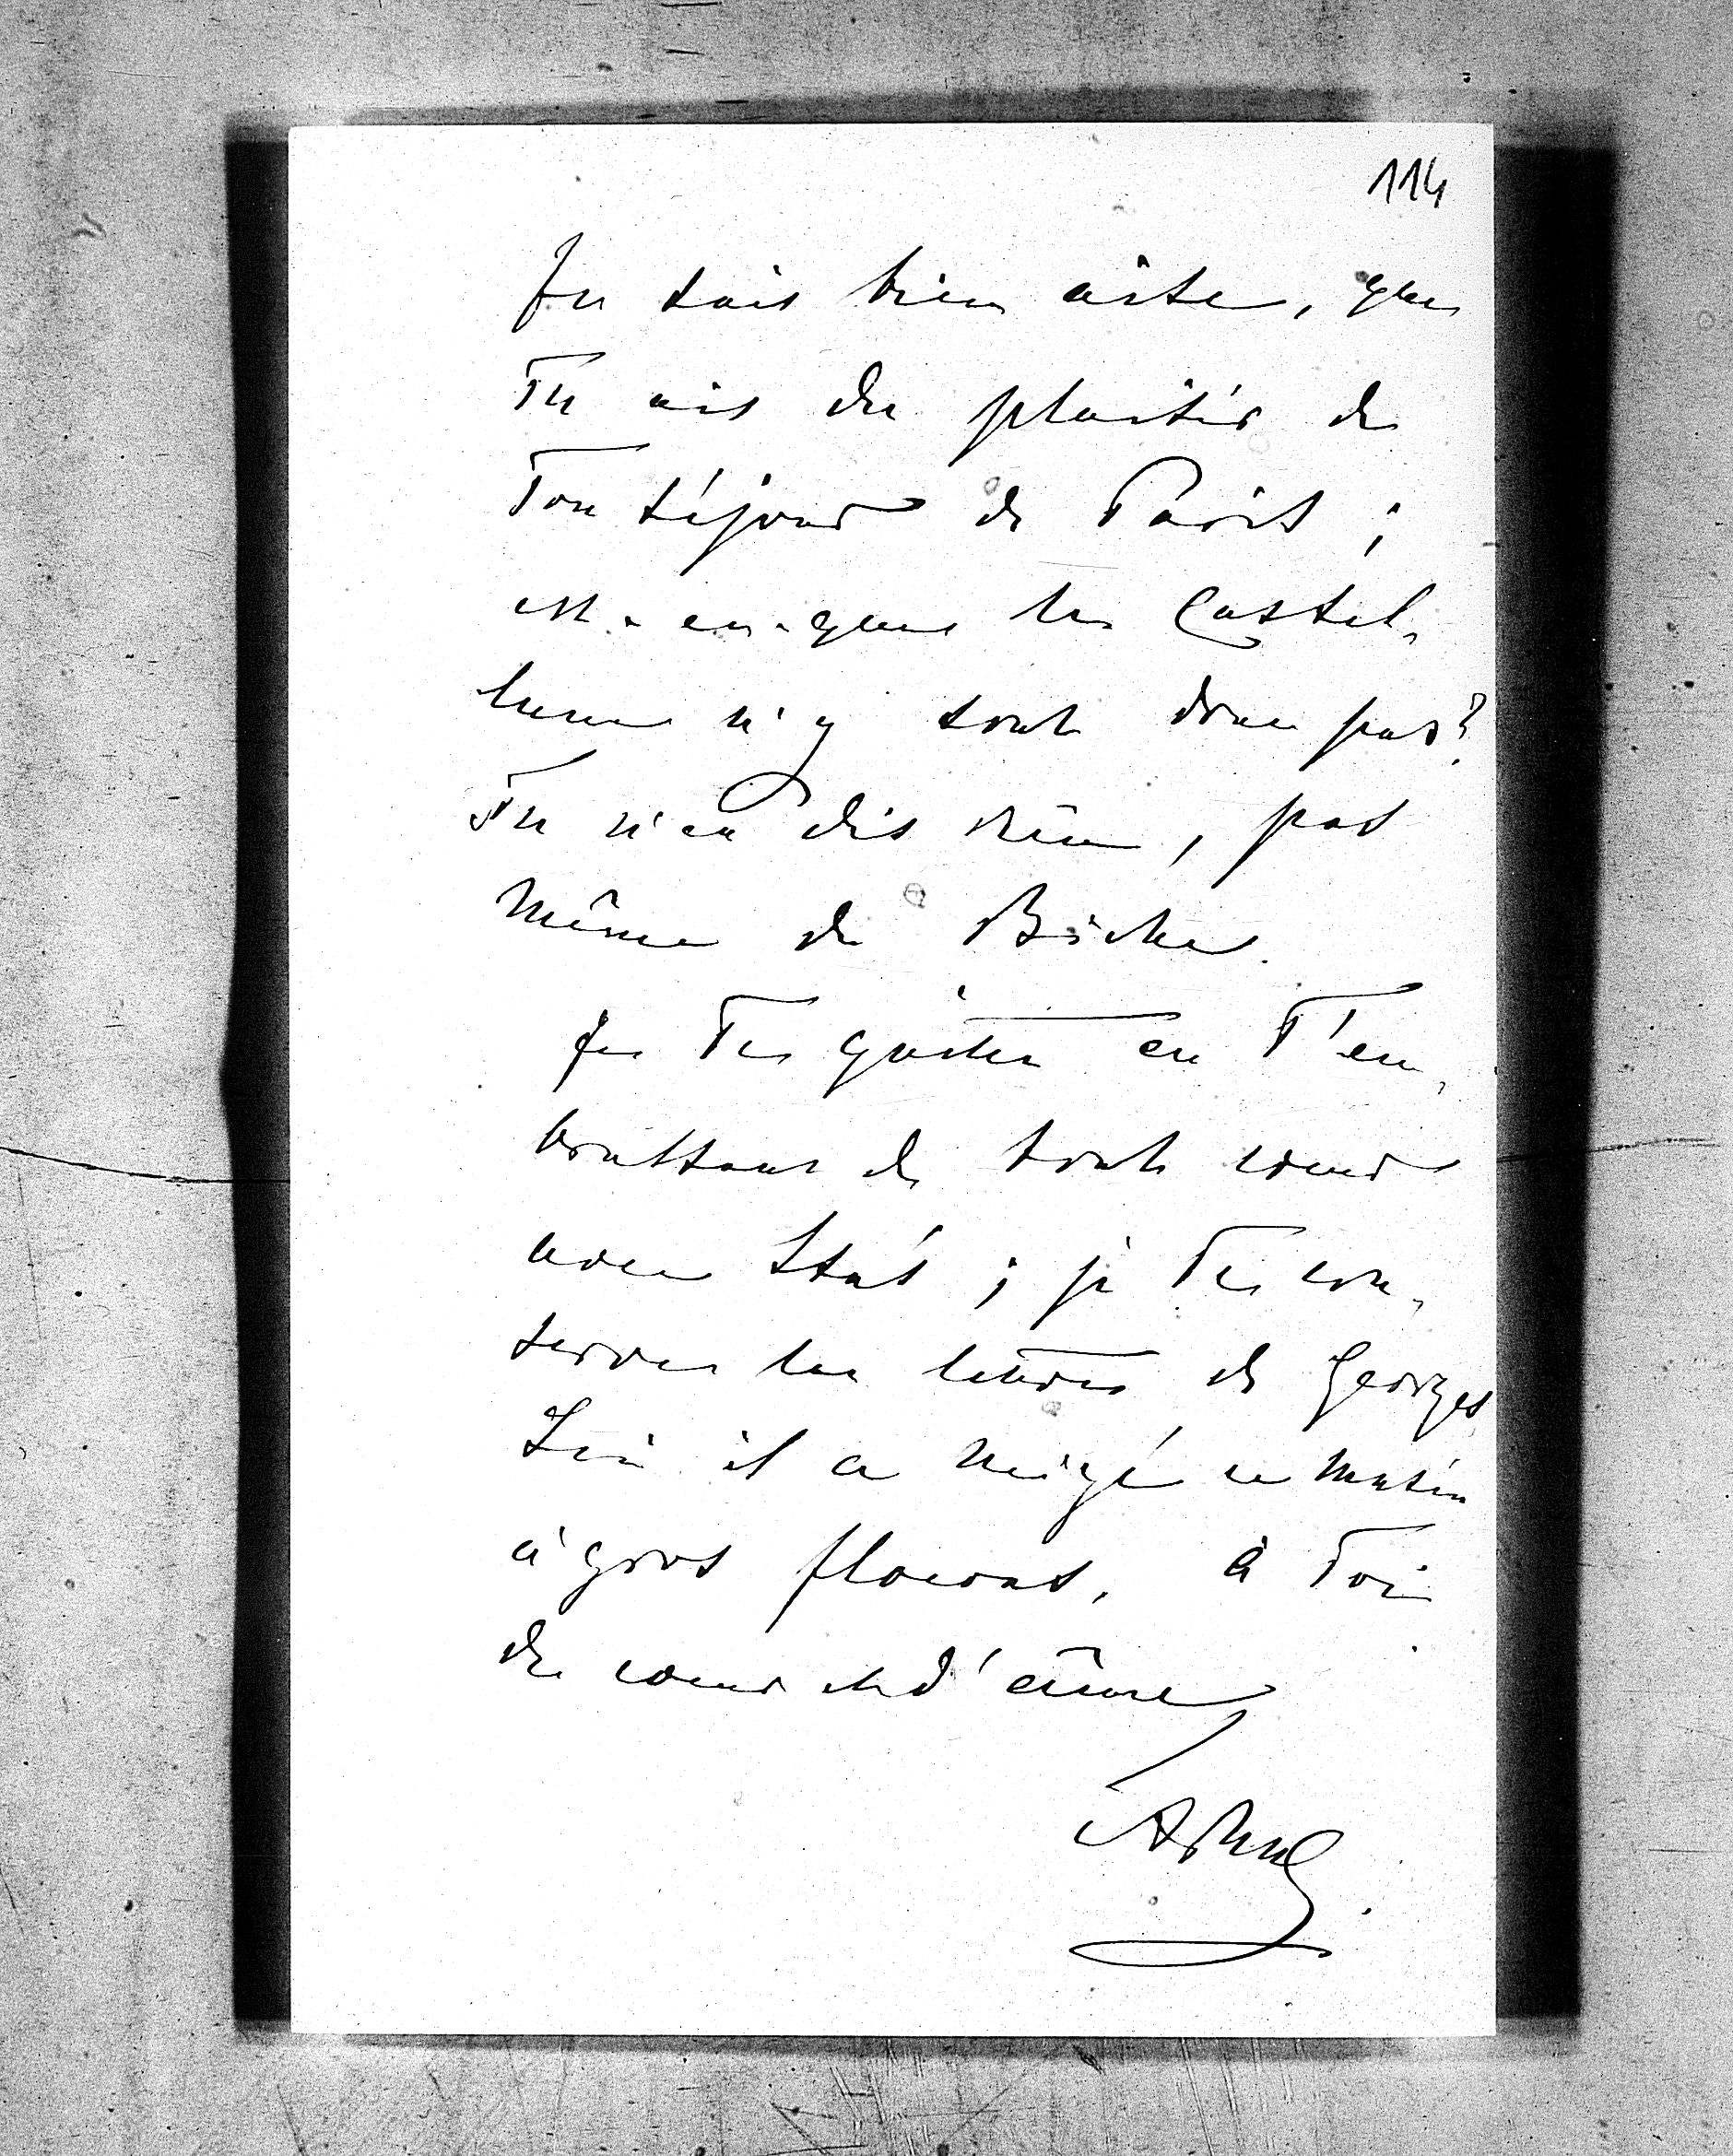 114
Je suis bien aise, que
Tu ais du plaisir de
Ton séjour de Paris ;
est-ce-que les Castel-
lane n'y sont donc pas?
Tu n'en dis rien, pas
même de Biche.
Je Te quitte en T'em-
brassant de tout coeur
avec Stas ; je Te con-
serve les lettres de Georges
Ici il a neigé ce matin
à gros flocons. à Toi
de coeur et d'âme